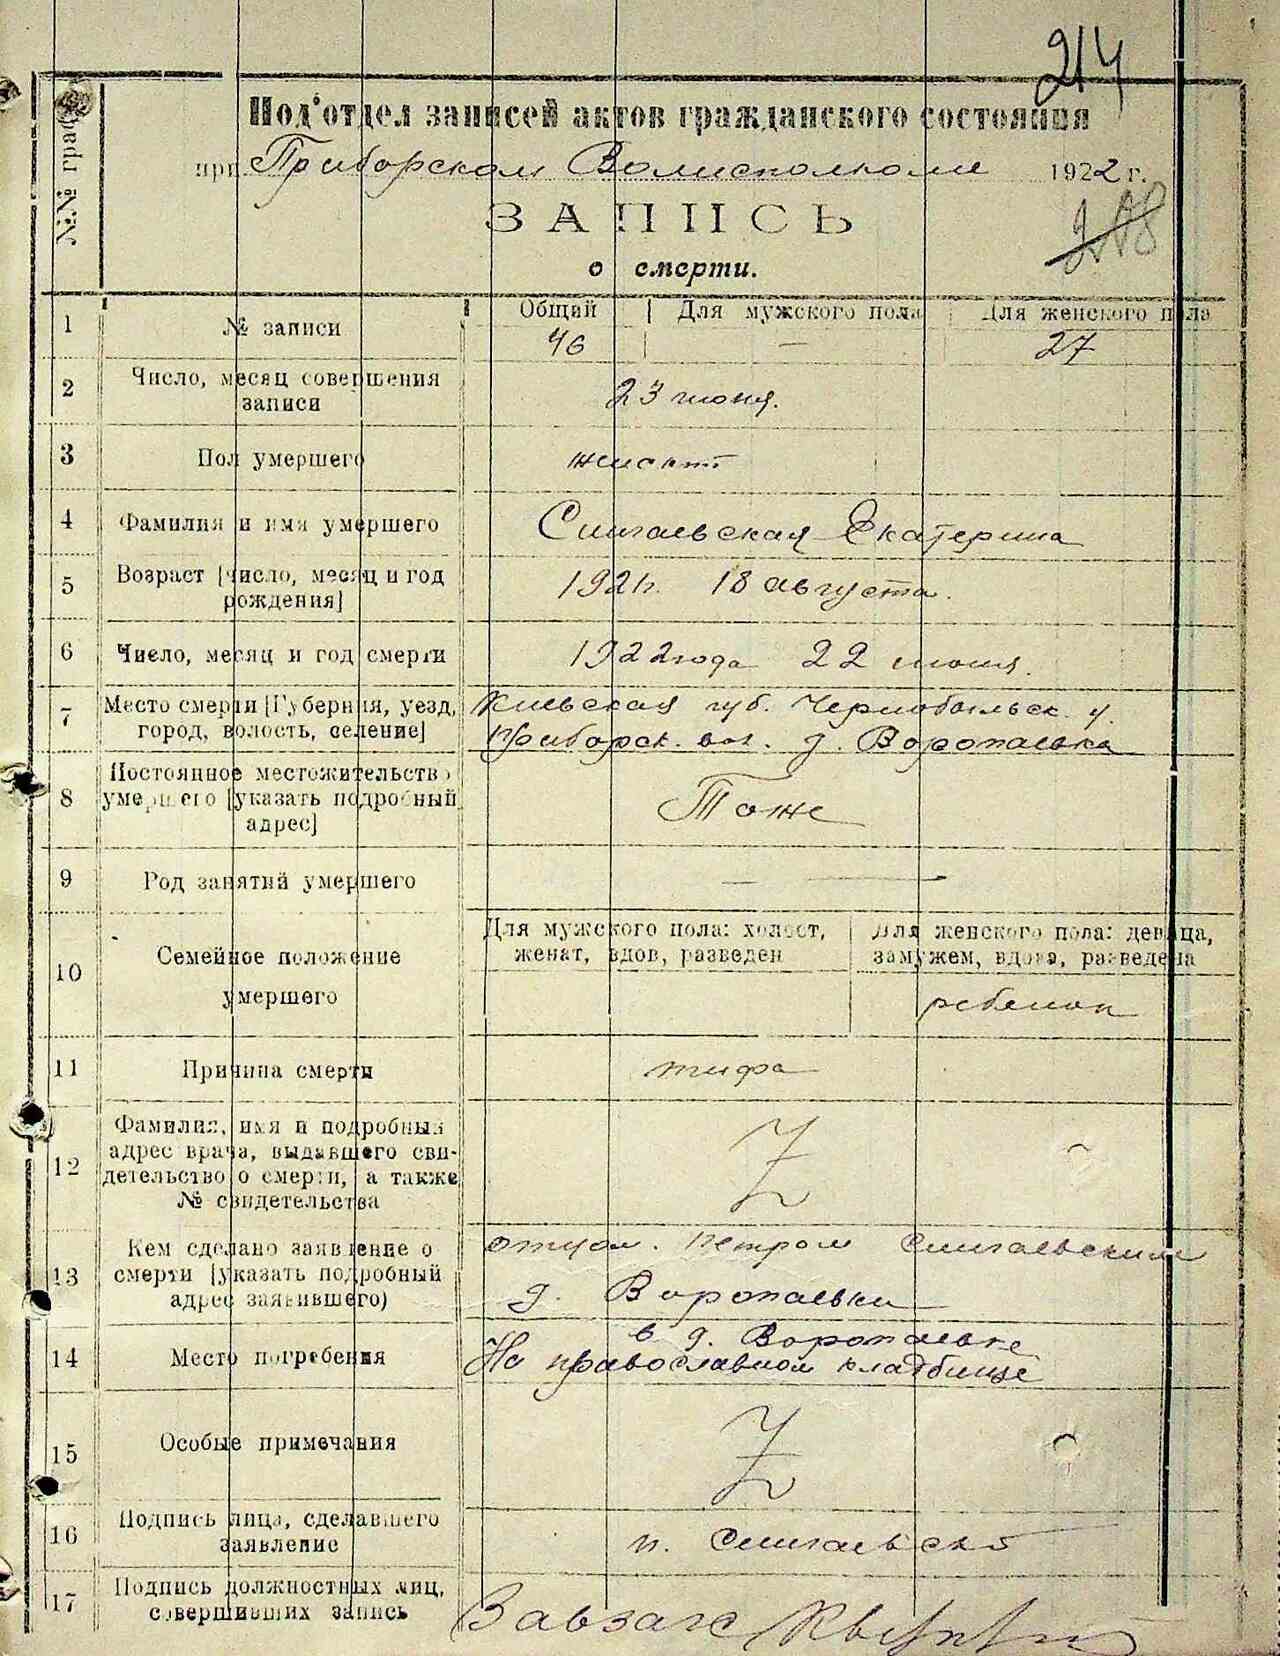 214
Под'отдел записей актов гражданского состояния
при Приборском Волисполкоме 1922 г.
ЗАПИСЬ
о смерти.
№№ граф
1 № записи Общий Для мужского пола Для женского пола
46 — 27
2 Число, месяц совершения записи 23 июня.
3 Пол умершего женский
4 Фамилия и имя умершего Сингаевская Екатерина
5 Возраст [число, месяц и год рождения] 1921г. 18 августа.
6 Число, месяц и год смерти 1922 года 22 июня.
7 Место смерти [Губерния, уезд, город, волость, селение] Киевская губ. Чернобыльск. у.
Приборск. вол. д. Воропаевка
8 Постоянное местожительство умершего [указать подробный адрес] Тоже
9 Род занятий умершего —
10 Семейное положение умершего Для мужского пола: холост, женат, вдов, разведен Для женского пола: девица, замужем, вдова, разведена
ребенок
11 Причина смерти тифа
12 Фамилия, имя и подробный адрес врача, выдавшего свидетельство о смерти, а также № свидетельства
13 Кем сделано заявление о смерти [указать подробный адрес заявившего) отцом. Петром Сингаевским
д. Воропаевки
14 Место погребения в д. Воропаевке
На православном кладбище
15 Особые примечания
16 Подпись лица, сделавшего заявление п. Сингаевск
17 Подпись должностных лиц, совершивших запись Завзагс